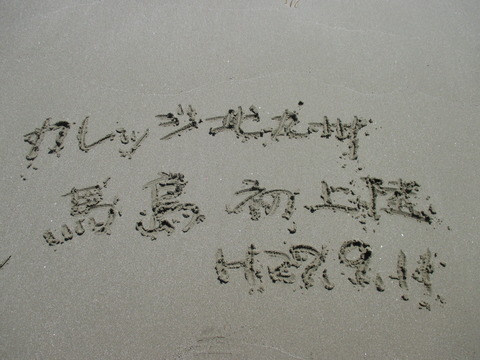 カレッジ北九州
馬島 初上陸
H27.9.14